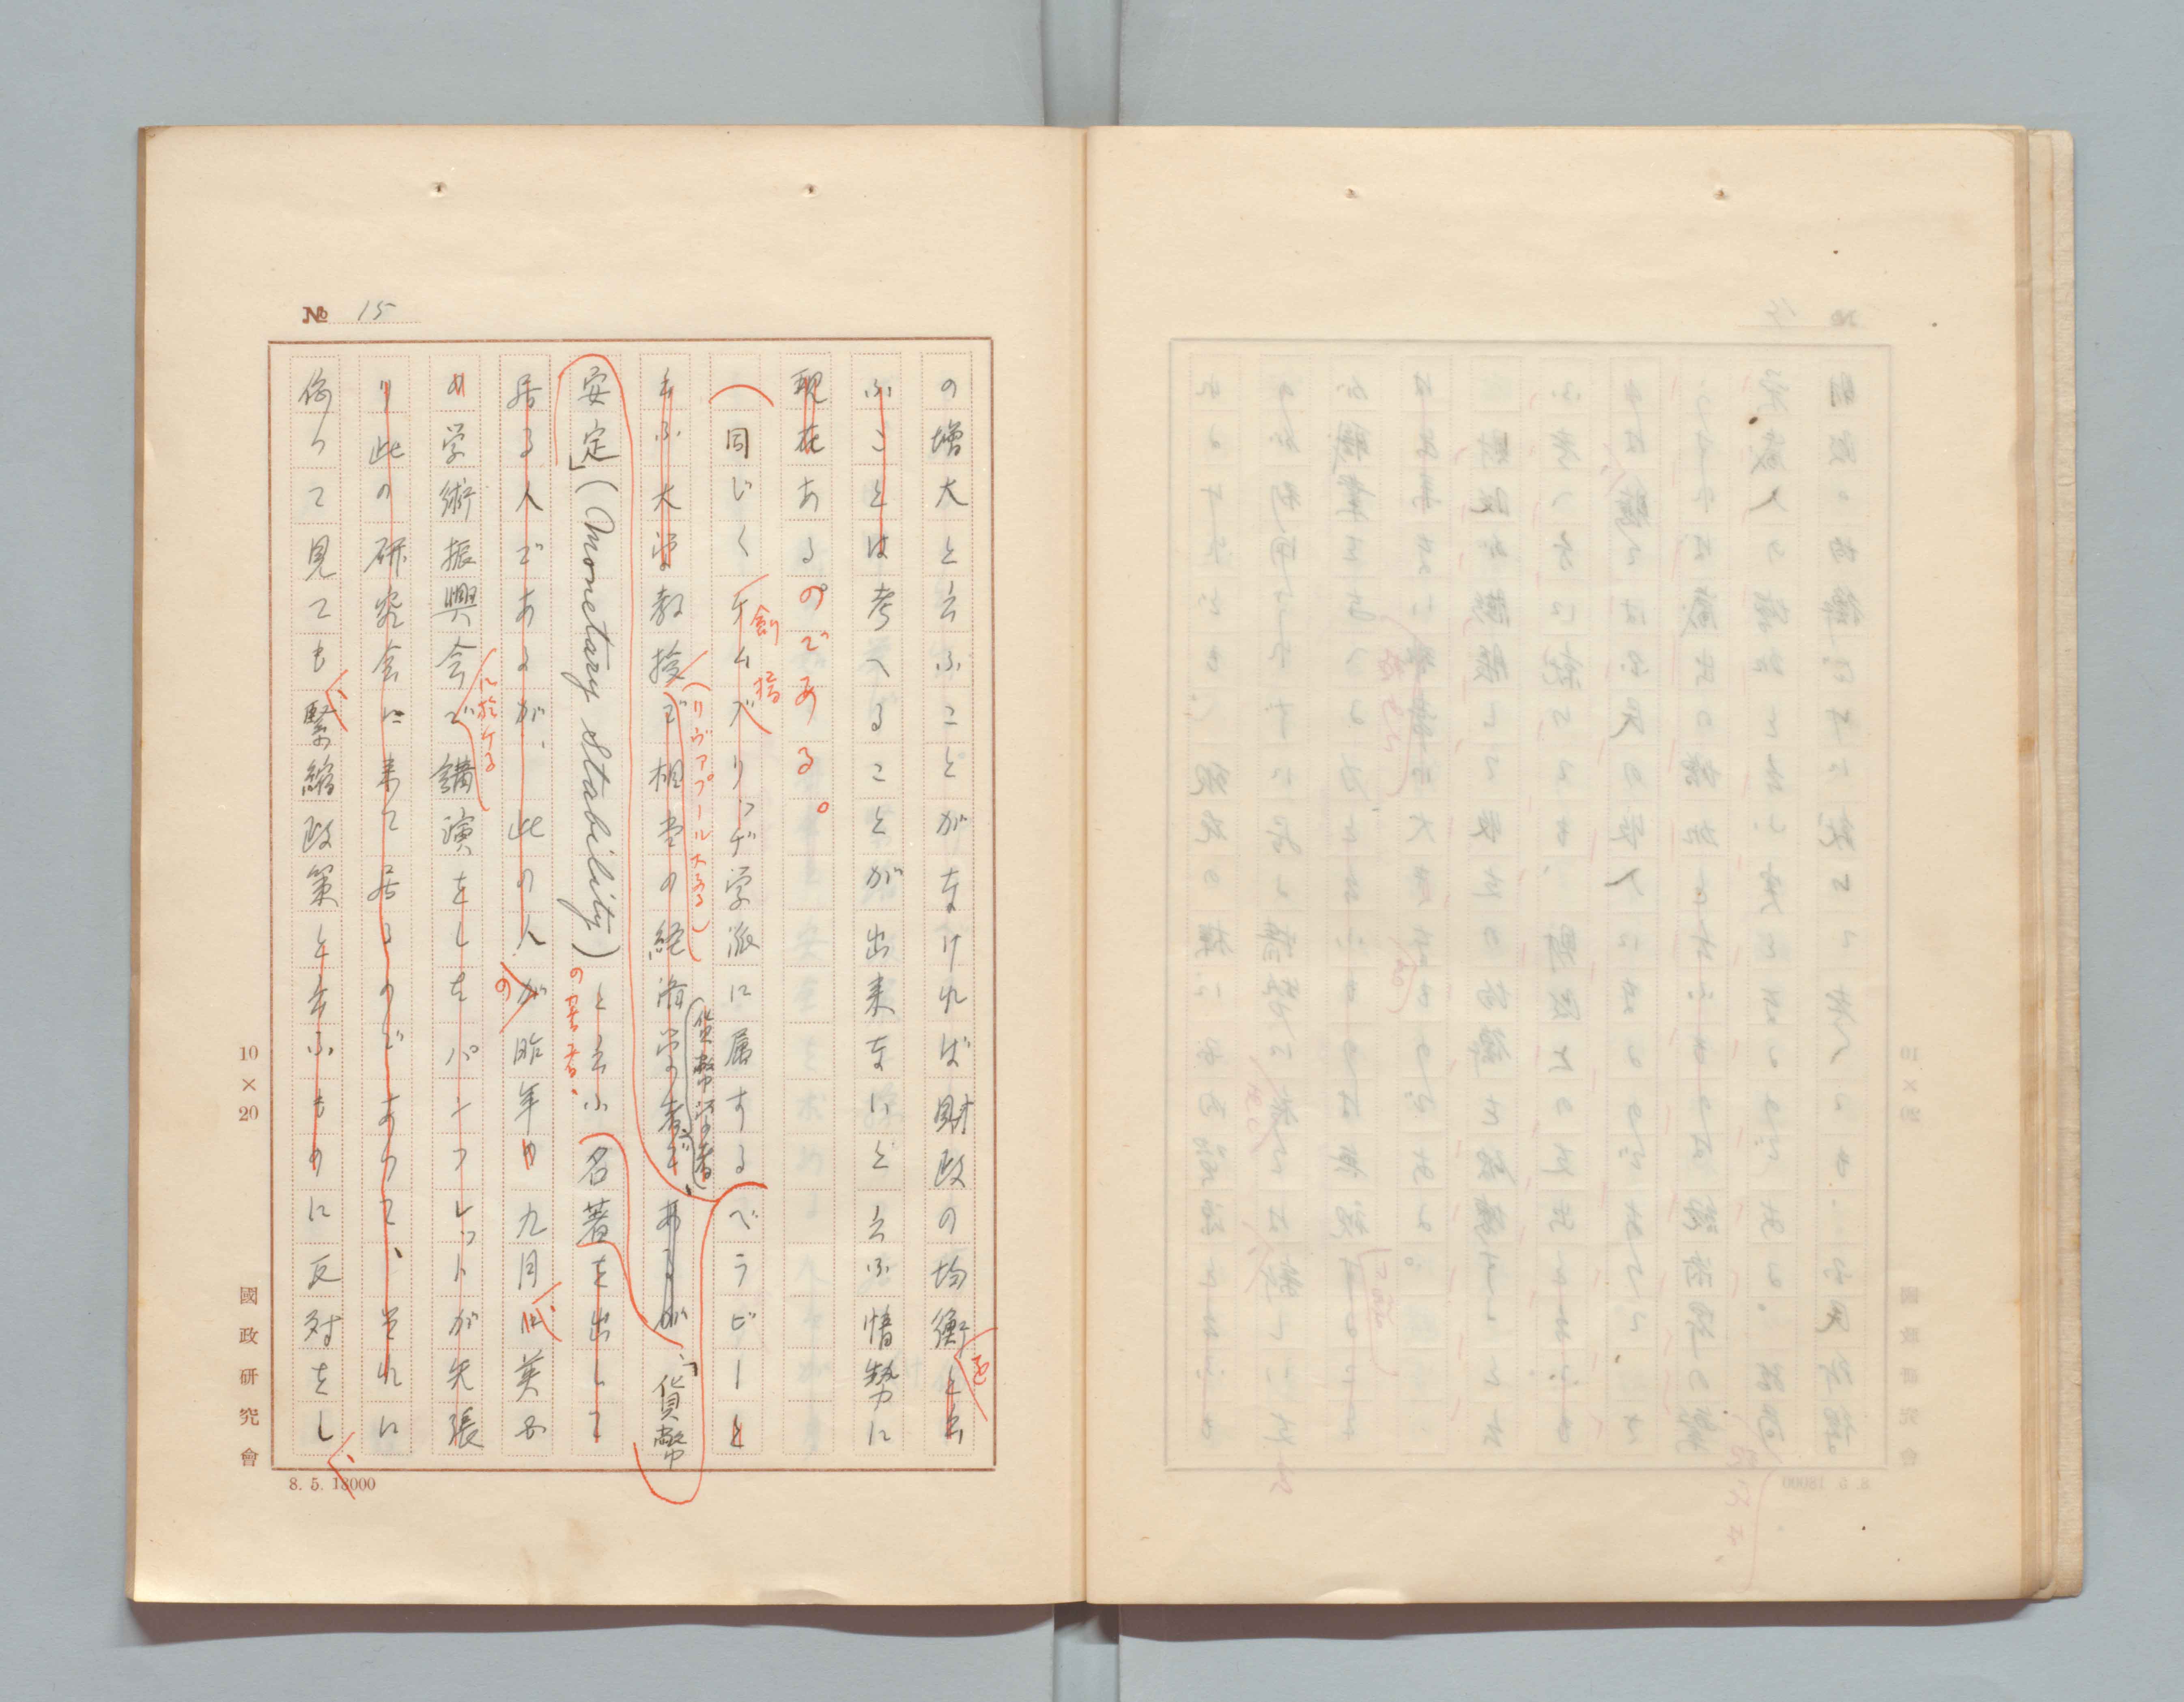 № 15
の増大と云ふことがなければ財政の均衡と云
を
ふことは考へることが出来ないと云ふ情勢に
現在あるのである。
同じくケムバリッヂ学派に属するベラビーと
創
云ふ大学教授で相当の経済学者であるが、「貨幣
(リヴァプール大学)
(貨幣学者)
安定」(Monetary Stability)と云ふ名著を出して
の著者.
居る人であるが、此の人が昨年の九月
の
の学術振興会で講演をしたパンフレットが矢張
に於ける
り此の研究会に来て居るのでありて、それに
依つて見ても緊縮政策と云ふものに反対をし
10×20
國政研究會
8. 5. 18000